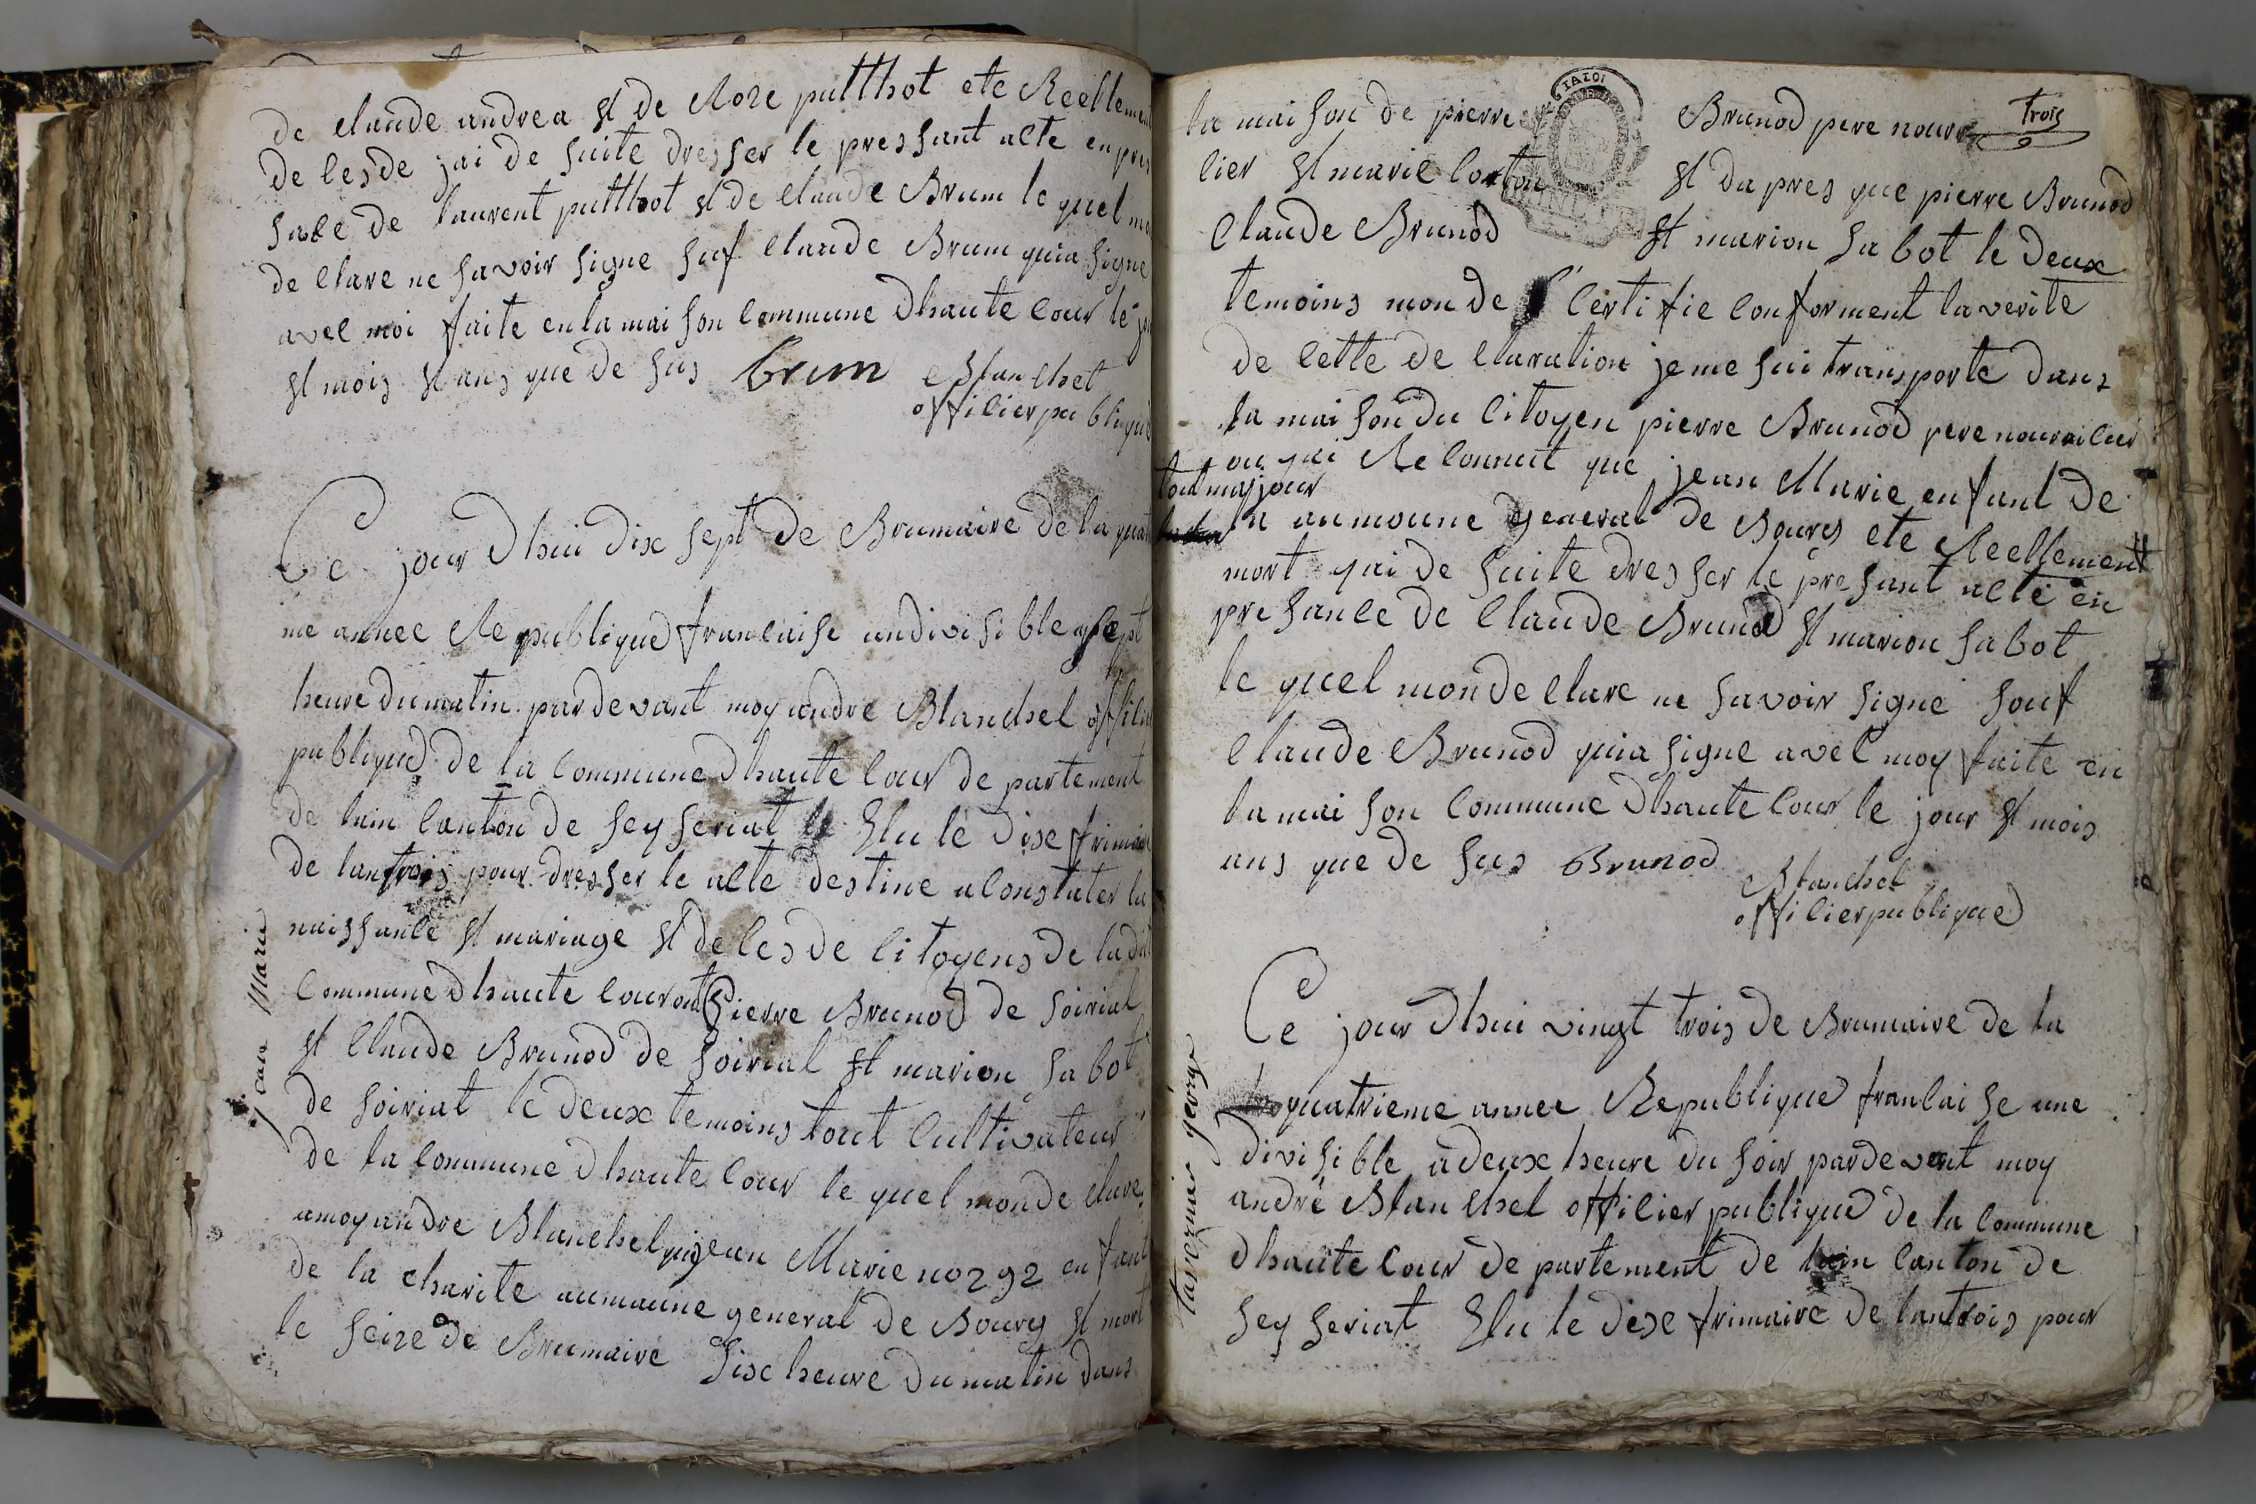 de claude andrea et de Roze putthot ete Reellement
de cesde jai de suite dresser le pressant acte en pres
sace de laurent putthot et de claude Brum le quel mo
de clare ne savoir signe sof claude Brum quia signe
avec moi faite en la mai son commune dhaute cour le jou
et mois et ans que de sus brum Blanchet
officier publique
Jean Marie
Ce jour dhui dix sept de Brumaire de la quat
me annee Republique francaise undivisible a sept
heure du matin par devant moy andre Blanchet officie
publique de la commune dhaute cour de partement
de lain canton de sey seriat Elu le dix frimaire
de lantrois pour dresser le acte destine a constater la
naissance et mariage et de cesde citoyens de la dit
commune dhaute cour ont Pierre Brunod de soiriat
et claude Brunod de soiriat et marion sabot
de soiriat le deux temoins tout cultivateur
de la commune dhaute cour le quel monde clare
a moy andre Blanchet que jean Marie no 292 enfant
de la charite aumaune general de Bourg et mort
le seize de Brumaire sixe heure du matin dans
trois
la mai son de pierre Brunod pere nourr
cier et marie corton et da pres que pierre Brunod
claude Brunod et marion sabot le deux
temoins mon de certifie conforment la verite
de cette de claration je me sui transporte dans
la mai son du citoyen pierre Brunod pere nouricier
ou jai Reconnut que jean Marie enfant de
tout majour
la aumoune general de Bourg ete Reellement
mort jai de suite dresser le presant acte en
presance de Claude Brunod et marion sabot
le quel monde clare ne savoir signe souf
claude Brunod quia signe avec moy faite en
la mai son commune dhaute cour le jour et mois
ans que de sus Brunod Blanchet
officier publique
tavernier george
Ce jour dhui vingt trois de Brumaire de la
quatrieme annee Republique francaise une
divisible a deux heure du soir pardevant moy
andré Blanchet officier publique de la commune
dhaute cour de partement de lain canton de
sey seriat Elu le dixe frimaire de lantrois pour